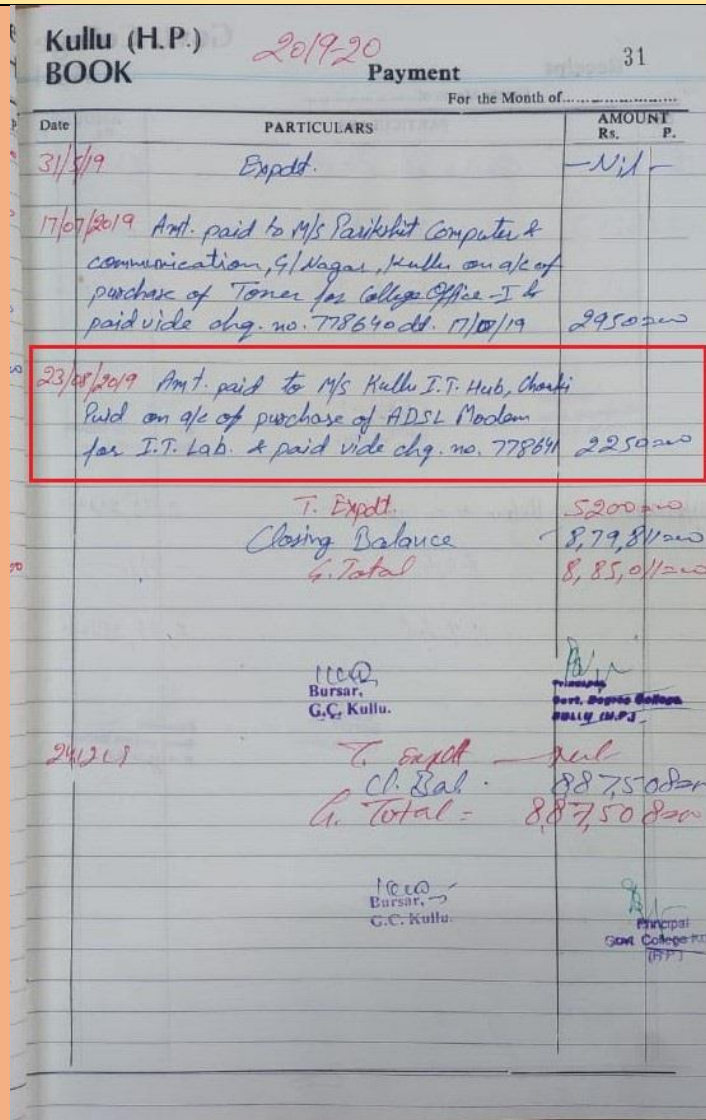 Kullu (H.P.) 2019-20 31
BOOK Payment
For the Month of
Date PARTICULARS AMOUNT
Rs. P.
31/5/19 Expdt. -Nil-
17/07/2019 Amt. paid to M/s Parikshit Computer &
communication, G/Nagar, Kullu on a/c of
purchase of Toner for College Office-I &
paid vide chq. no. 778640 dt. 17/07/19 2950=00
23/08/2019 Amt. paid to M/s Kullu I.T. Hub,
on a/c of purchase of ADSL Modem
for I.T. Lab. & paid vide chq. no. 778641 2250=00
T. Expdt. 5200=00
Closing Balance 8,79,811=00
G. Total 8,85,011=00
Bursar,
G.C. Kullu.
Principal
Govt. Degree College
KULLU (H.P.)
T. Expdt - Nil
Cl. Bal. 887,508=00
G. Total = 8,87,508=00
Bursar,
G.C. Kullu.
Principal
Govt. College
(H.P.)